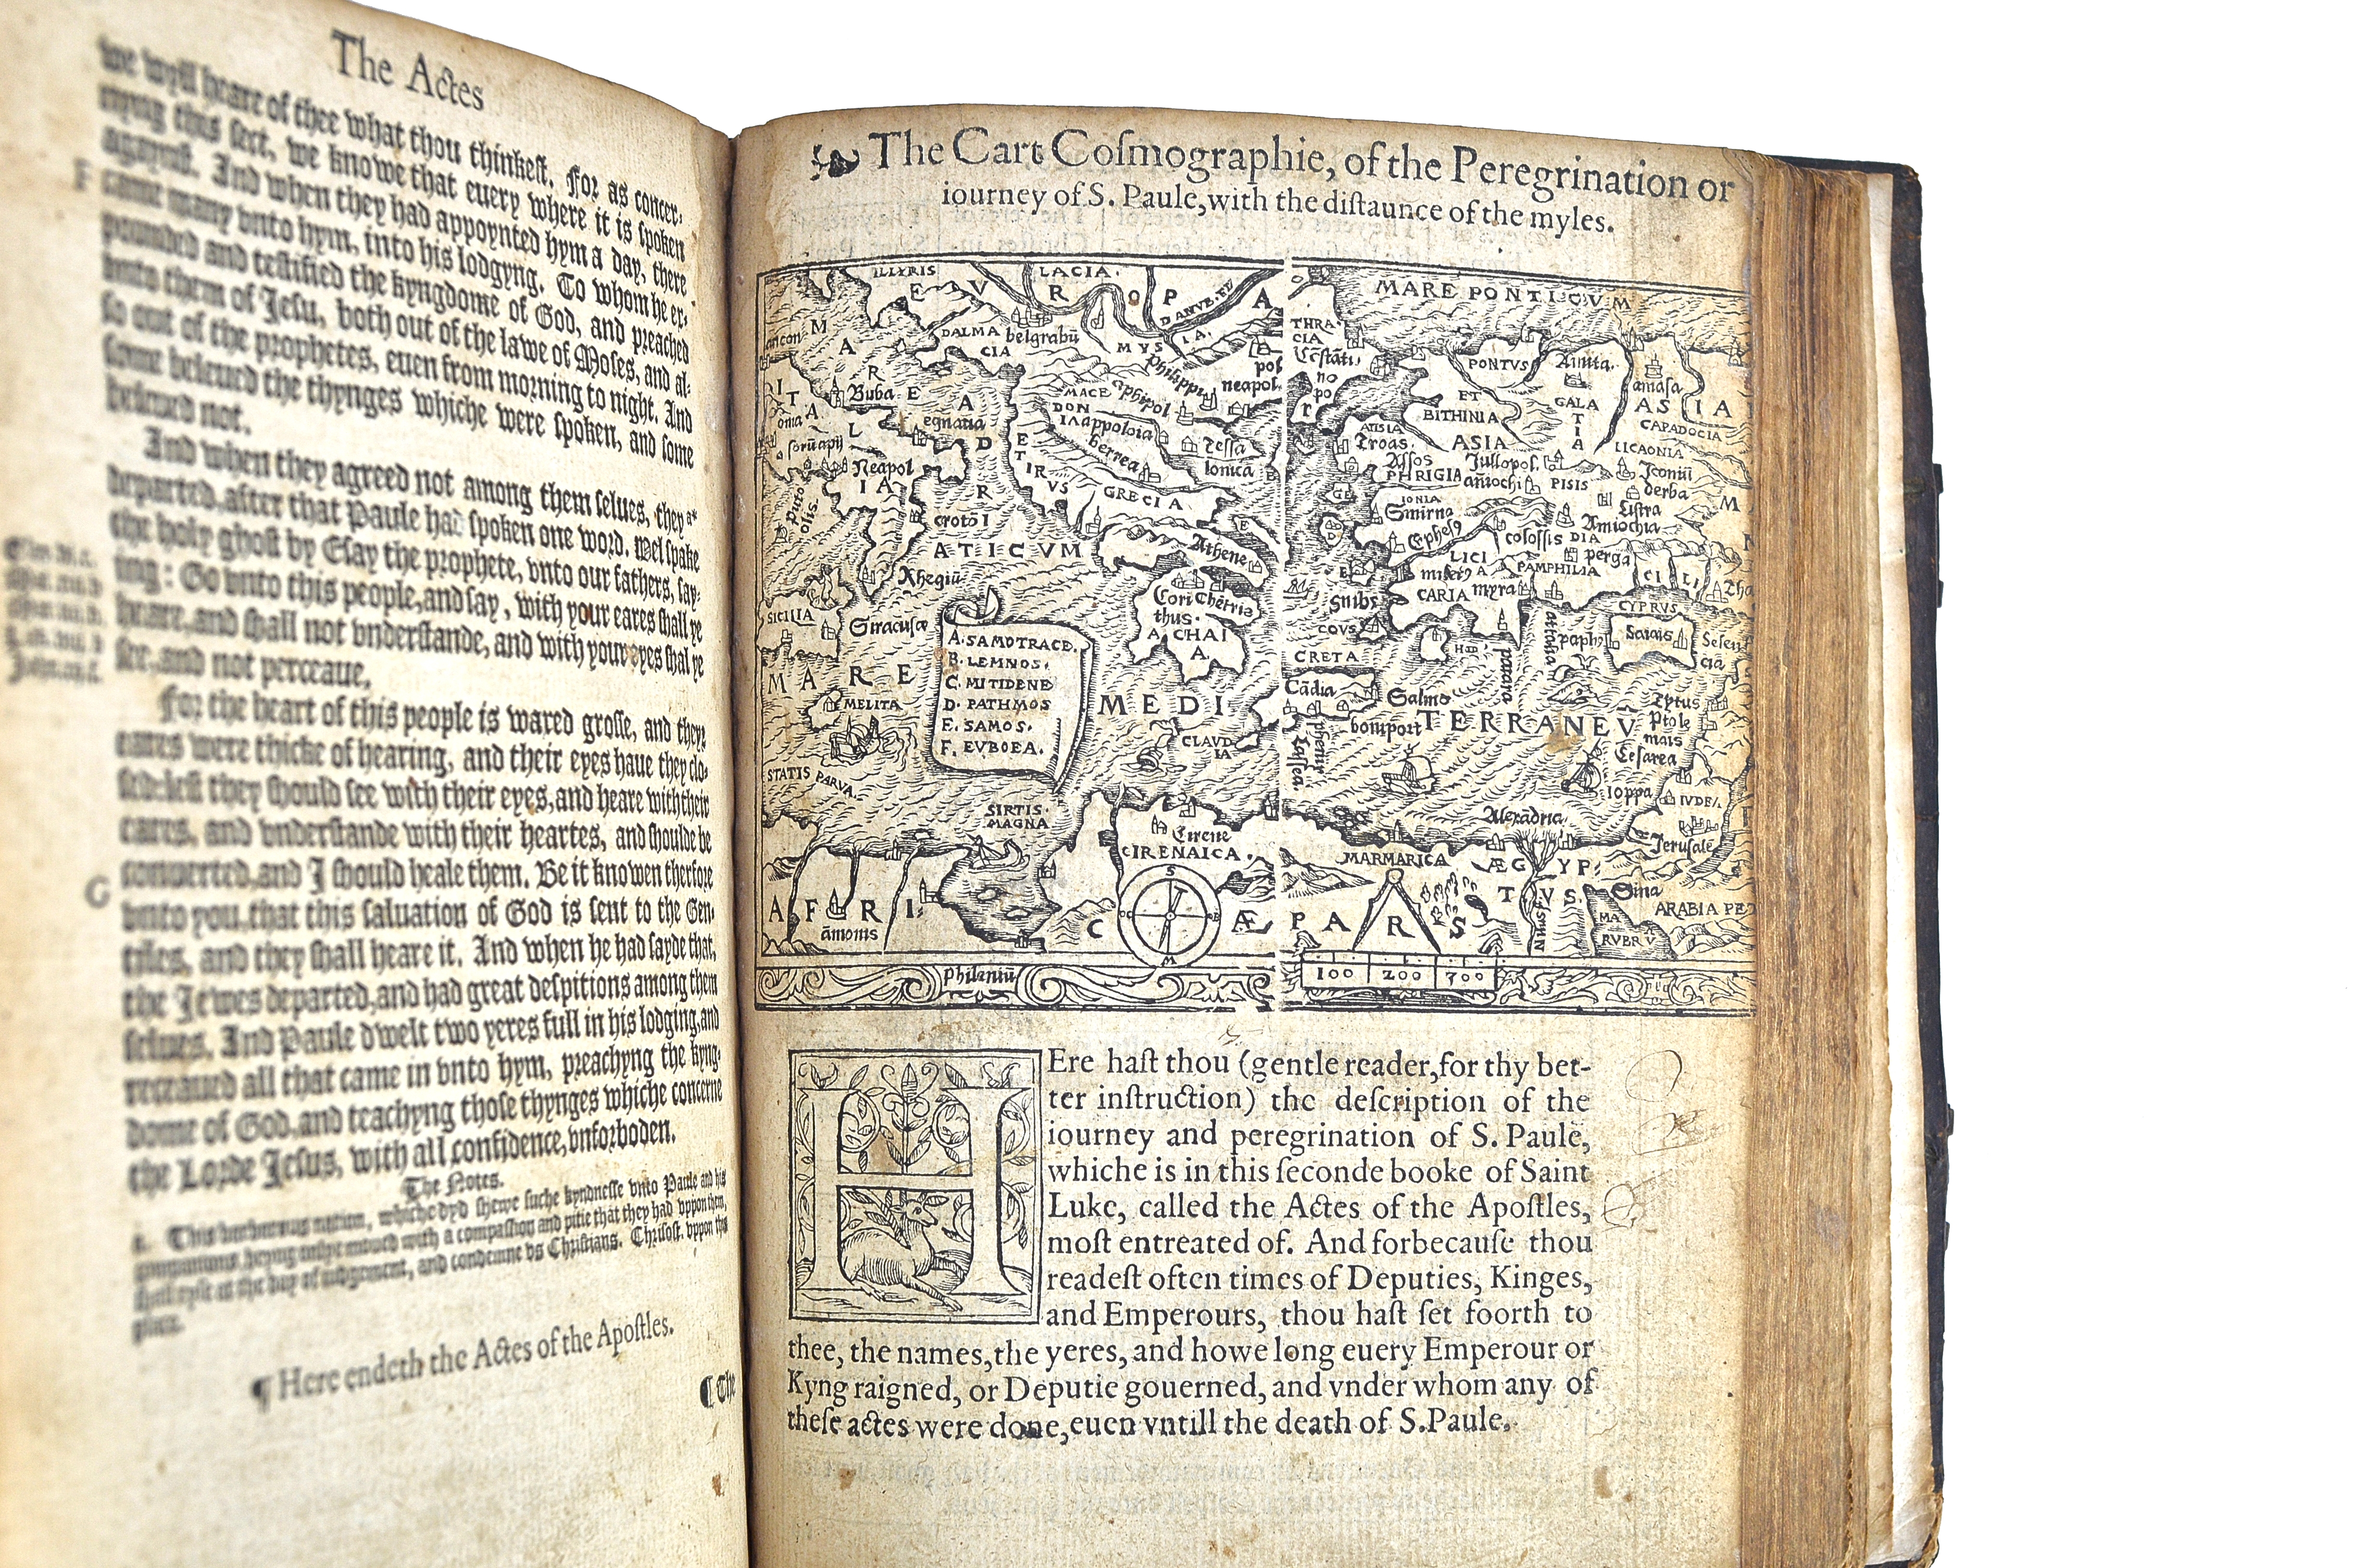 The Actes
we wyll heare of thee what thou thinkest. For as concer-
nyng this sect, we knowe that euery where it is spoken
agaynst. And when they had appoynted hym a day, there
F came many vnto hym, into his lodgyng. To whom he ex-
pounded and testified the kyngdome of God, and preached
vnto them of Jesu, both out of the lawe of Moses, and al-
so out of the prophetes, euen from morning to night. And
some beleued the thynges whiche were spoken, and some
beleued not.
And when they agreed not among them selues, they
departed, after that Paule had spoken one word. Wel spake
the holy ghost by Esay the prophete, vnto our fathers, say-
ing: Go vnto this people, and say, with your eares shall ye
heare, and shall not vnderstande, and with your eyes shal ye
see, and not perceaue,
For the heart of this people is waxed grosse, and theyr
eares were thicke of hearing, and their eyes haue they clo-
sed: lest they should see with their eyes, and heare with their
eares, and vnderstande with their heartes, and shoulde be
G conuerted, and I should heale them. Be it knowen therfore
vnto you, that this saluation of God is sent to the Gen-
tiles, and they shall heare it. And when he had sayde that,
the Jewes departed, and had great despitions among them
selues. And Paule dwelt two yeres full in his lodging, and
receaued all that came in vnto hym, preachyng the kyng-
dome of God, and teachyng those thynges whiche concerne
the Lorde Jesus, with all confidence, vnforboden.
The Notes.
a. This barbarous nation, whiche dyd shewe suche kyndnesse vnto Paule and his
companions, beyng onlye moued with a compassion and pitie that they had vppon them,
shall ryse at the day of iudgement, and condemne vs Christians. Chrisost. vppon this
place.
¶ Here endeth the Actes of the Apostles.
¶ The
The Cart Cosmographie, of the Peregrination or
iourney of S. Paule, with the distaunce of the myles.
ILLYRIS
LACIA.
EVROPA
DANVB. FV
MARE PONTICVM
MARE
DALMA
CIA
belgrabū
MVSIA.
THRA
CIA
Cōstāti
no
po
PONTVS
ET
BITHINIA
amasa
ASIA
GALA
TIA
CAPADOCIA
LICAONIA
ITALIA
Buba
egnatia
Neapol
MACE
DON
IA
appoloia
berrea
Philippi
neapol
Tessa
lonica
Troas.
ASIA
Assos
PHRIGIA
Jullopol.
PISIS
DIA
Iconiū
derba
Listra
EPIRVS
GRECIA
IONIA
Smirna
Ephes9
colossis
perga
PAMPHILIA
LICI
A
CARIA
myra
CILI
ADRIATICVM
crotō
Rhegiū
Athene
Cori
thus.
Chētris
ACHAI
A.
SICILIA
Siracusæ
A. SAMOTRACE.
B. LEMNOS.
C. MITIDENE
D. PATHMOS
E. SAMOS.
F. EVBOEA.
COVS
CYPRUS
paph9
patara
CRETA
Cādia
Salmo
boniport
phenix
MARE MEDITERRANEV̄
MELITA
CLAVD
IA
Ptole
mais
Cesarea
Ioppa
IVDEA
Jerusalē
STATIS PARVA.
SIRTIS.
MAGNA
Cirene
CIRENAICA.
MARMARICA
Alexādria
ÆGYP
TVS.
Nilus
Sina
ARABIA PE
MA
RVBRV
AFRICÆ PARS
āmonis
philæniū
100 200 300
HEre hast thou (gentle reader, for thy bet-
ter instruction) the description of the
iourney and peregrination of S. Paule,
whiche is in this seconde booke of Saint
Luke, called the Actes of the Apostles,
most entreated of. And forbecause thou
readest often times of Deputies, Kinges,
and Emperours, thou hast set foorth to
thee, the names, the yeres, and howe long euery Emperour or
Kyng raigned, or Deputie gouerned, and vnder whom any of
these actes were done, euen vntill the death of S. Paule.